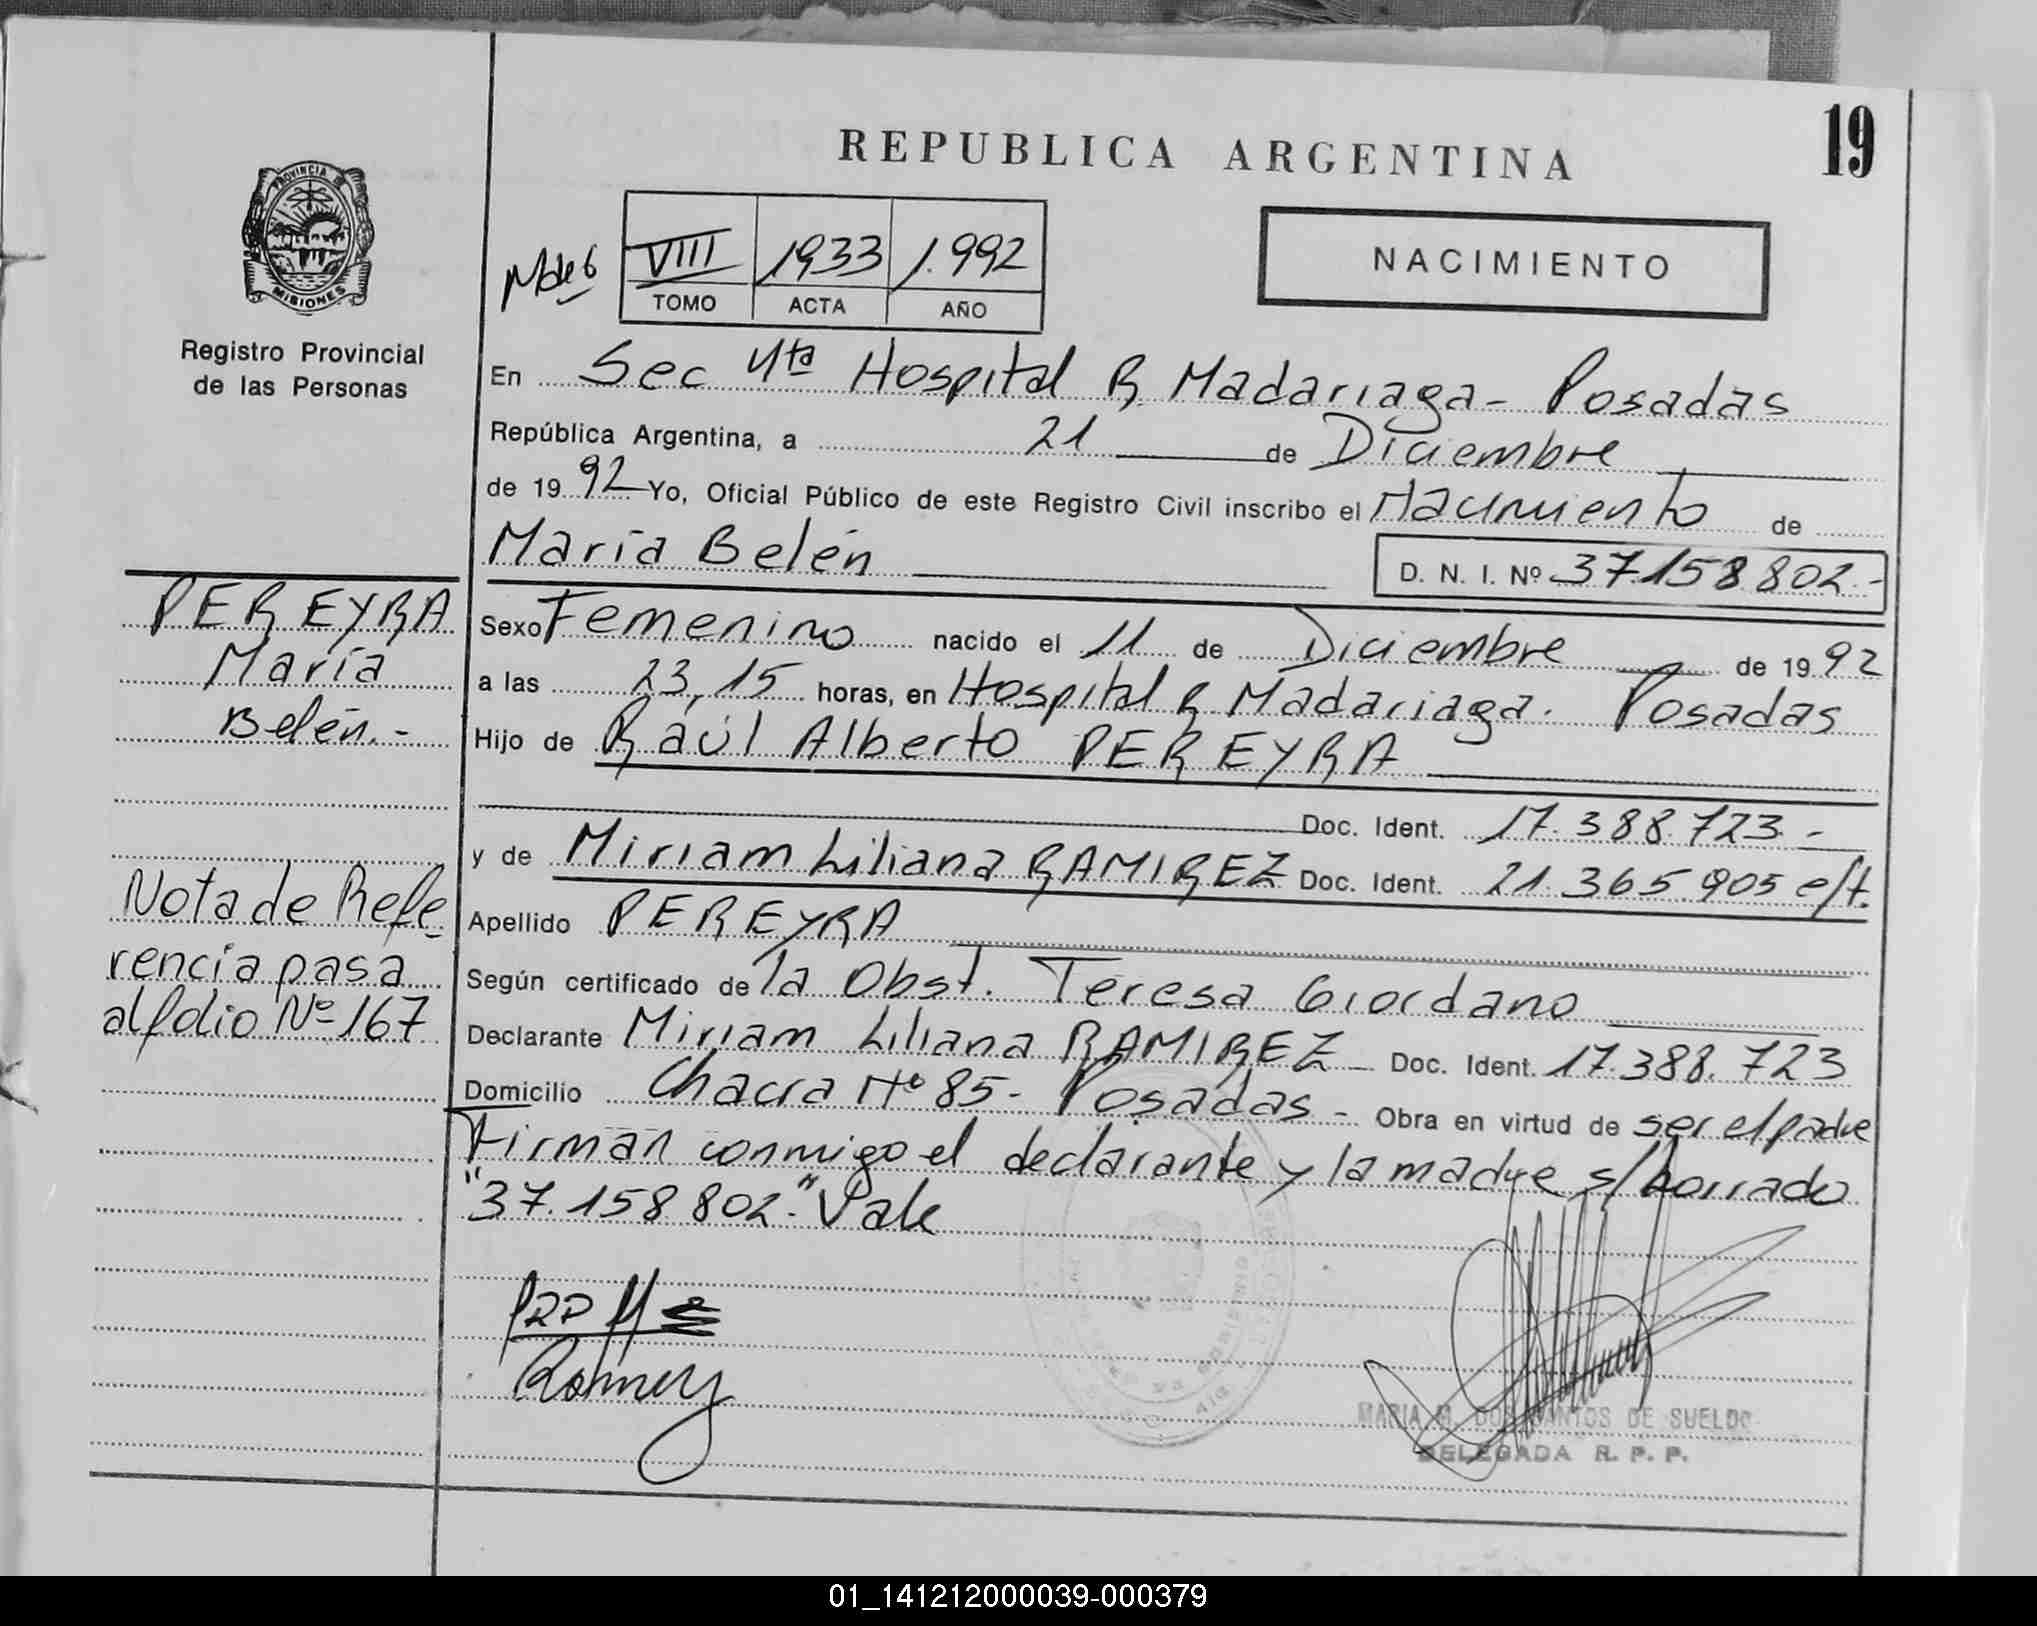 REPUBLICA ARGENTINA
19
PROVINCIA DE
MISIONES
Registro Provincial
de las Personas
VIII 1933 1.992
TOMO ACTA AÑO
NACIMIENTO
En Sec 4ta Hospital R Madariaga - Posadas
República Argentina, a 21 de Diciembre
de 19 92 Yo, Oficial Público de este Registro Civil inscribo el Nacimiento de
María Belén D. N. I. Nº 37.158.802.-
PEREYRA
María
Belén.-
Sexo Femenino nacido el 11 de Diciembre de 19 92
a las 23,15 horas, en Hospital R Madariaga. Posadas
Hijo de Raúl Alberto PEREYRA
Doc. Ident. 17.388.723.-
y de Miriam Liliana RAMIREZ Doc. Ident. 21.365.905 e/t.
Nota de Refe
rencia pasa
al folio Nº 167
Apellido PEREYRA
Según certificado de la Obst. Teresa Giordano
Declarante Miriam Liliana RAMIREZ Doc. Ident. 17.388.723
Domicilio Chacra Nº 85 - Posadas - Obra en virtud de ser el padre
Firman conmigo el declarante y la madre s/borrado
"37.158.802." Vale
MARIA M. DOS SANTOS DE SUELDO
DELEGADA R. P. P.
01_141212000039-000379